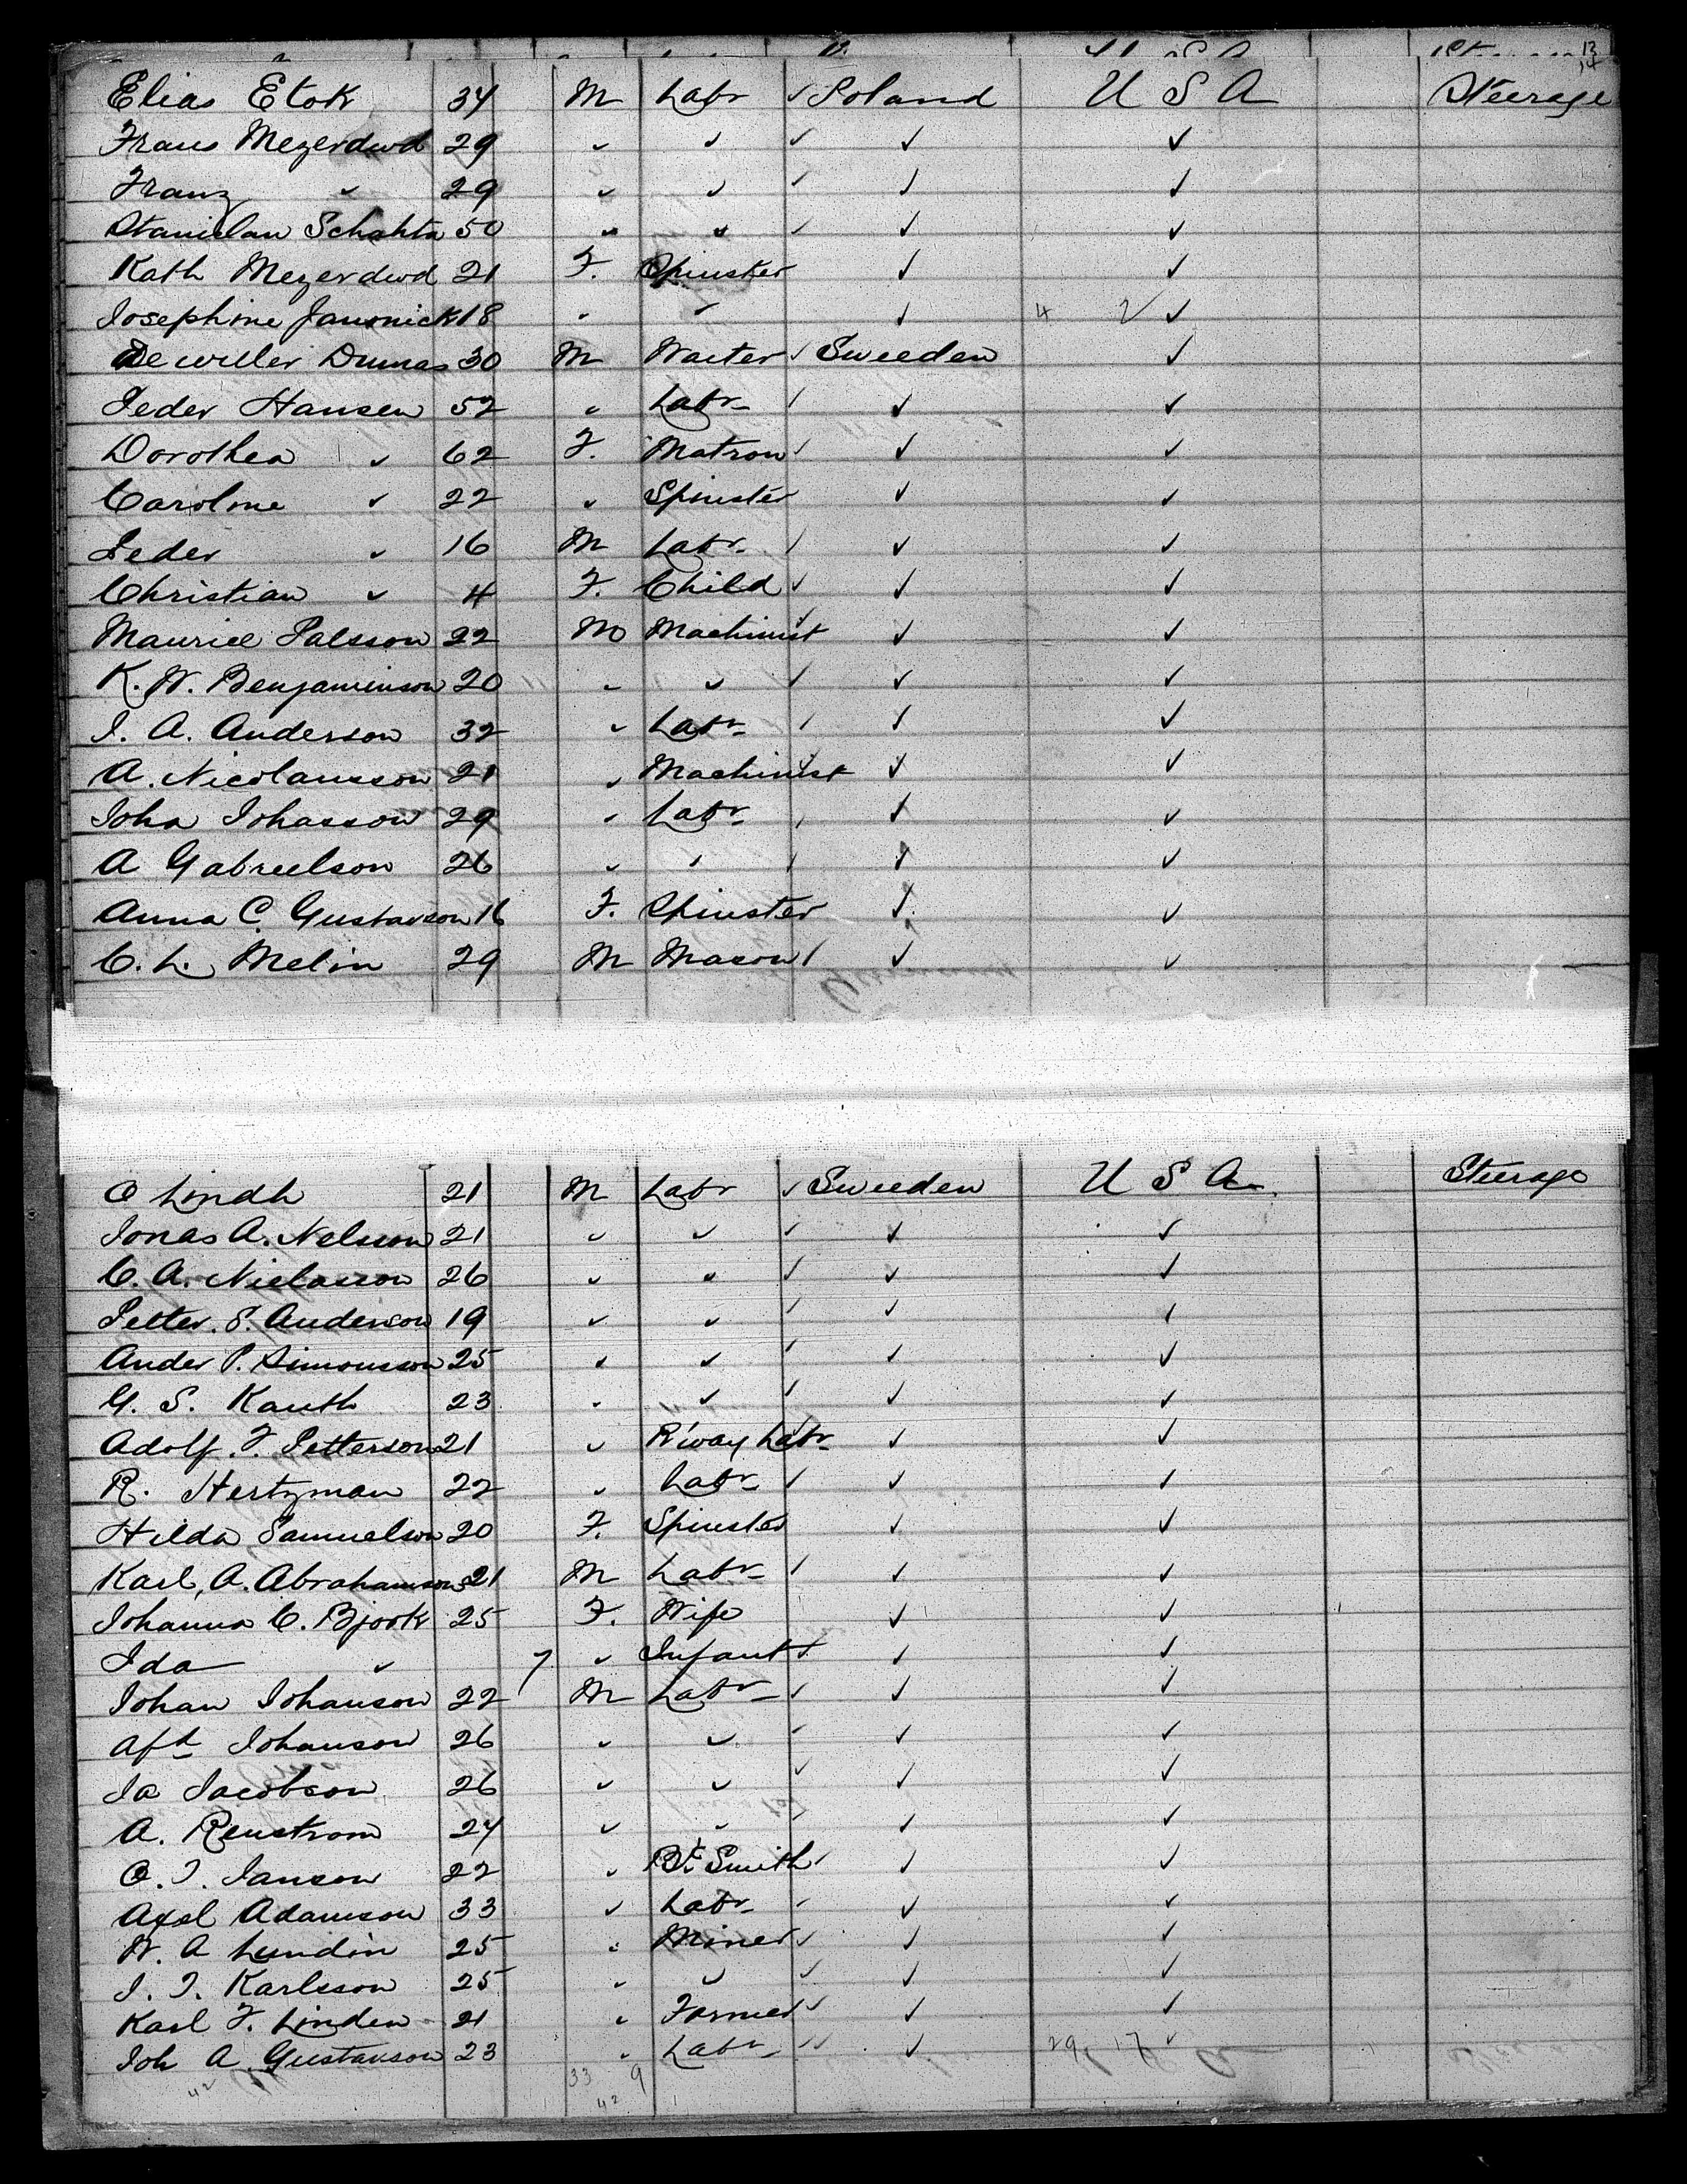 13
14
Elias Etok 34 M Labr ✓ Poland U S A Steerage
Frans Mezerdwd 29 " " ✓ ✓ ✓
Franz " 29 " " ✓ ✓ ✓
Stanislau Schahta 50 " " ✓ ✓ ✓
Kath Mezerdwd 21 F. Spinster ✓ ✓
Josephine Janonick 18 " " ✓ 4 2 ✓ ✓
De willer Dumas 30 M Waiter ✓ Sweeden ✓
Peder Hansen 52 " Labr ✓ ✓ ✓
Dorothea " 62 F. Matron ✓ ✓ ✓
Caroline " 22 " Spinster ✓ ✓
Peder " 16 M Labr ✓ ✓ ✓
Christian " 4 F. Child ✓ ✓ ✓
Maurice Palsson 22 M Machinist ✓ ✓ ✓
K. W. Benjaminson 20 " " ✓ ✓ ✓
I. A. Anderson 32 " Labr ✓ ✓ ✓
A. Nicolausson 21 " Machinist ✓ ✓ ✓
Joha Johasson 29 " Labr ✓ ✓ ✓
A Gabrielson 26 " " ✓ ✓ ✓
Anna C. Gustavson 16 F. Spinster ✓ ✓
C. L. Melin 29 M Mason ✓ ✓ ✓
O Lindh 21 M Labr ✓ Sweeden U S A Steerage
Jonas A. Nelsson 21 " " ✓ ✓ ✓
C. A. Nielasson 26 " " ✓ ✓ ✓
Petter. S. Anderson 19 " " ✓ ✓ ✓
Ander P. Simonsson 25 " " ✓ ✓ ✓
G. S. Kauth 23 " " ✓ ✓ ✓
Adolf. F. Petterson 21 " R'way Labr ✓ ✓ ✓
R. Hertzman 22 " Labr ✓ ✓ ✓
Hilda Samuelson 20 F. Spinster ✓ ✓
Karl, A. Abrahamsons 21 M Labr ✓ ✓ ✓
Johanna C. Bjork 25 F. Wife ✓ ✓
Ida " 7 " Infant ✓ ✓ ✓
Johan Johanson 22 M Labr ✓ ✓ ✓
Johanson 26 " " ✓ ✓ ✓
Ja Jacobson 26 " " ✓ ✓ ✓
A. Renstrom 24 " " ✓ ✓ ✓
O. J. Janson 22 " Bk. Smith ✓ ✓ ✓
Axel Adamson 33 " Labr ✓ ✓ ✓
W. A Lundin 25 " Miner ✓ ✓ ✓
J. J. Karlsson 25 " " ✓ ✓ ✓
Karl F. Linden 21 " Farmer ✓ ✓ ✓
Joh A. Gustavson 23 " Labr ✓ ✓ 29 17 ✓
42 33 9
42